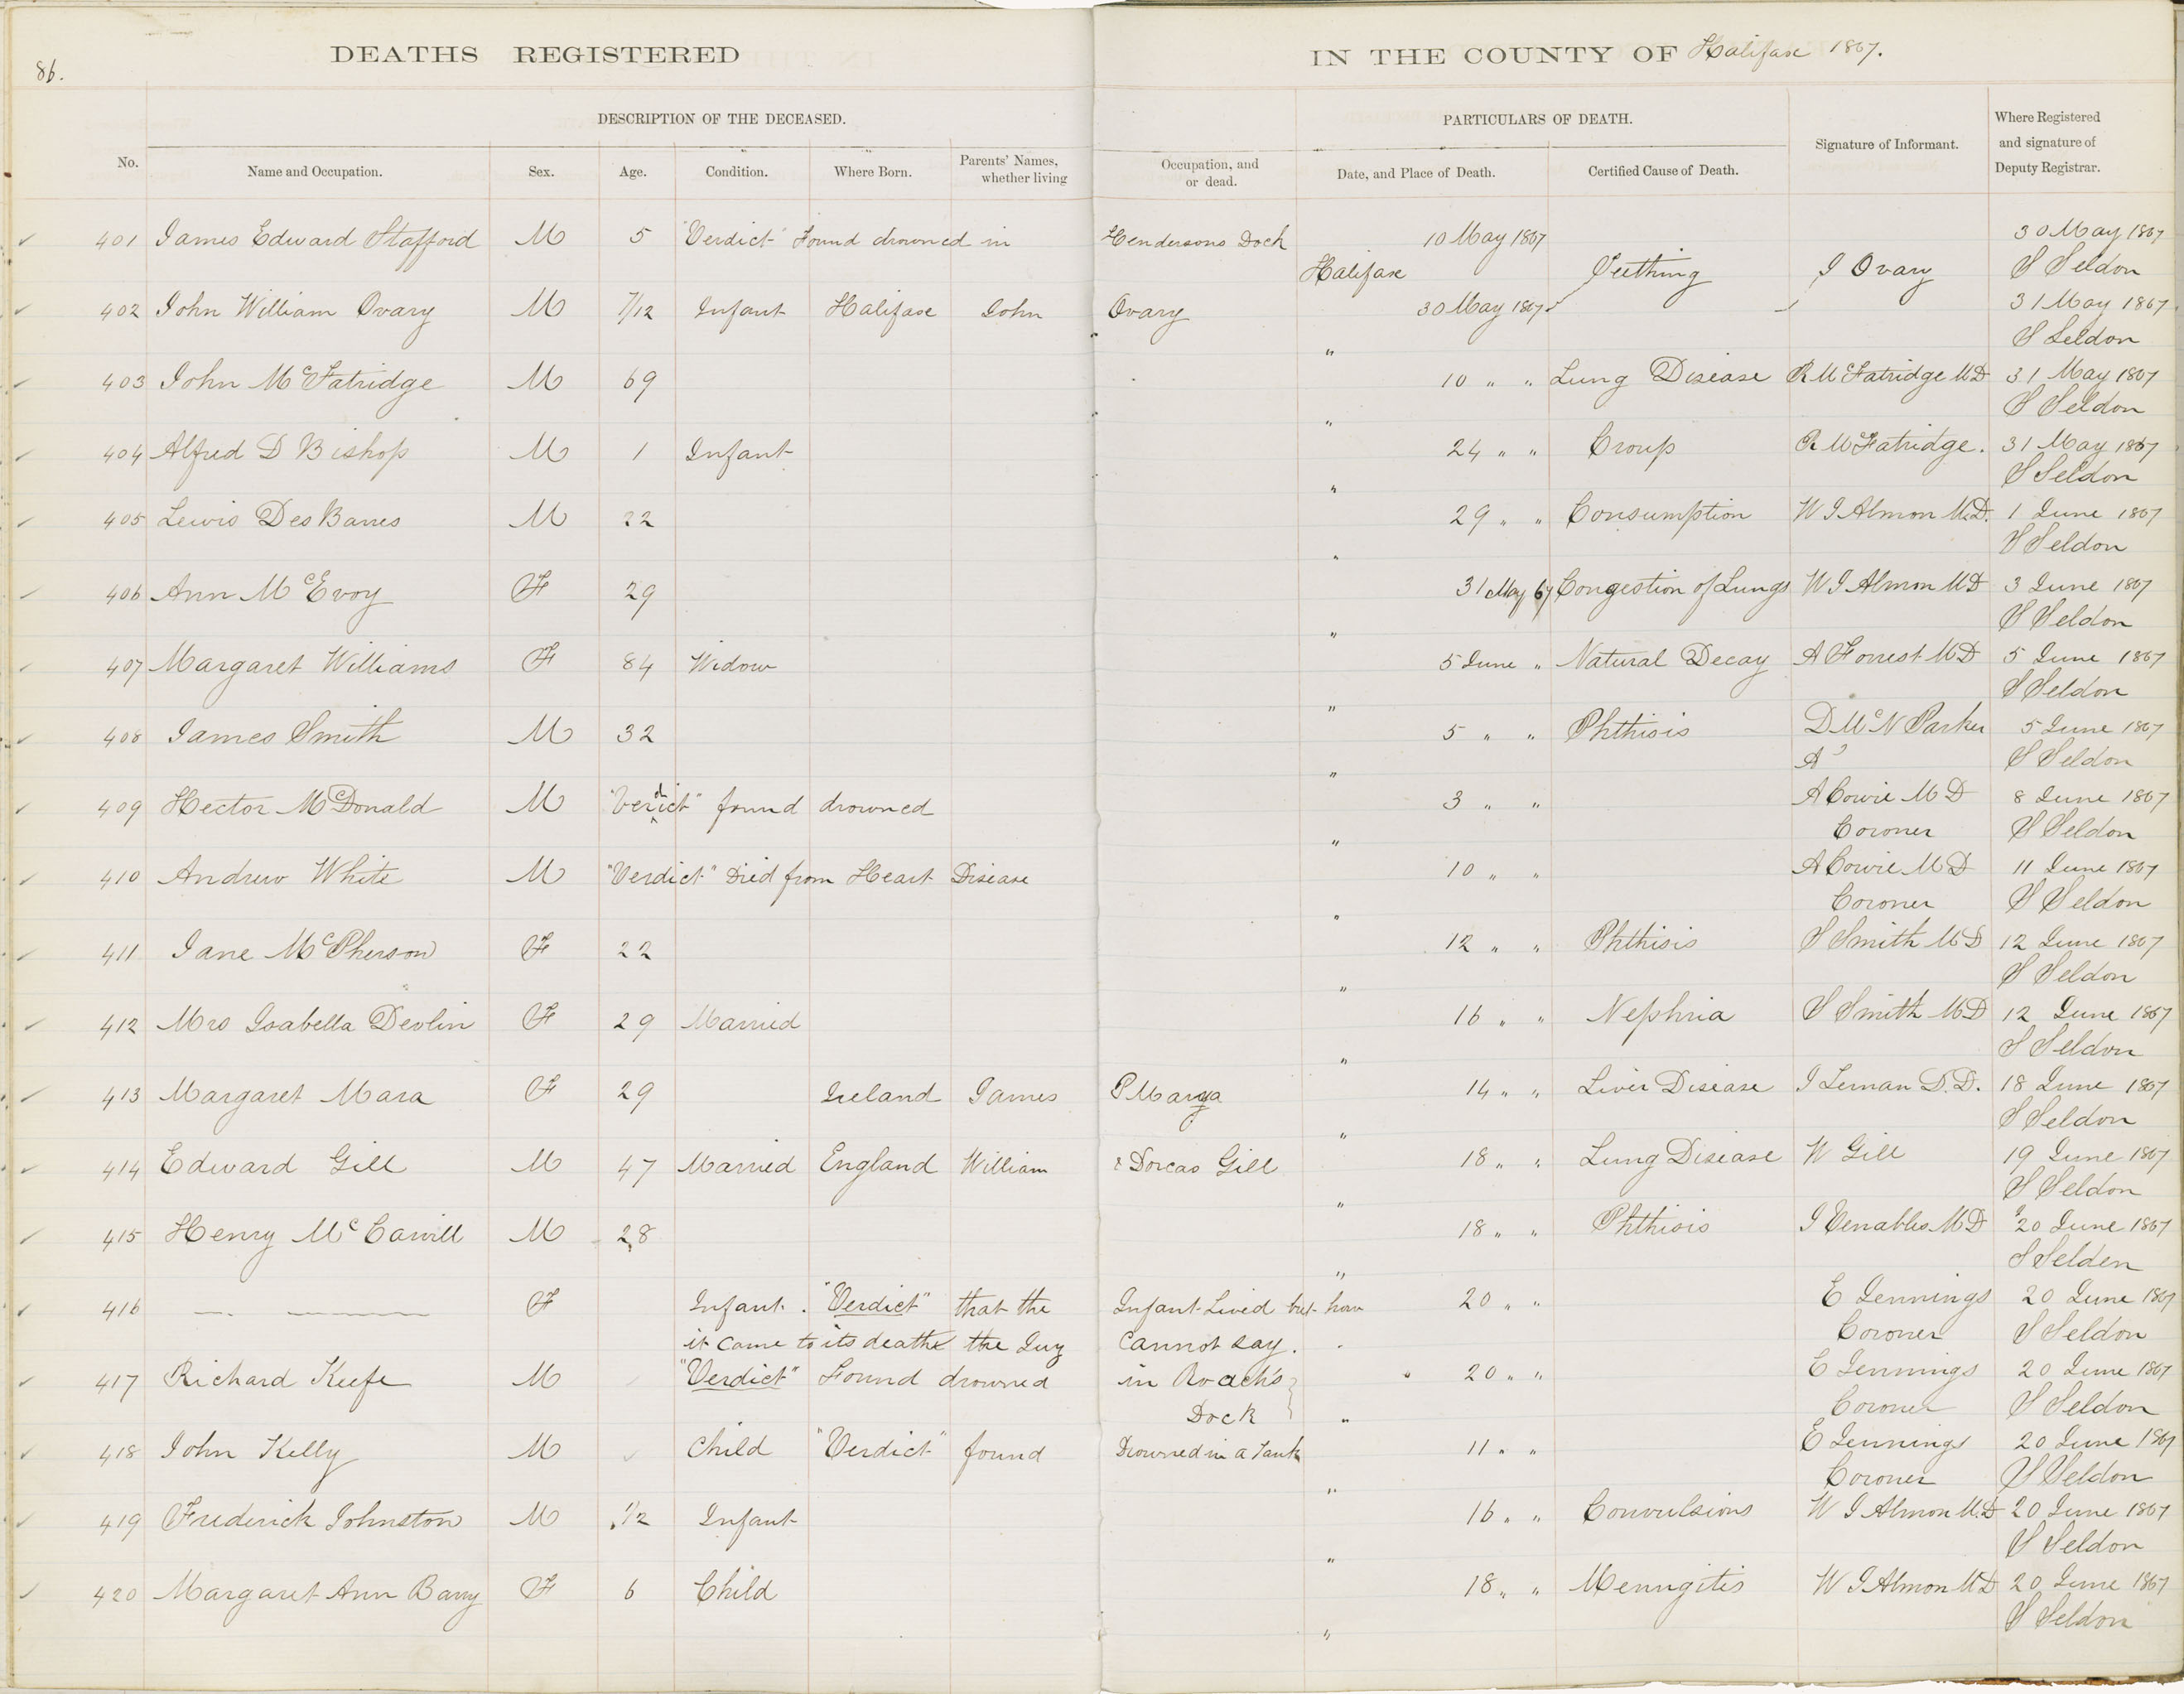 86.
DEATHS REGISTERED IN THE COUNTY OF Halifax 1867.
DESCRIPTION OF THE DECEASED. PARTICULARS OF DEATH.
No. Name and Occupation. Sex. Age. Condition. Where Born. Parents' Names, whether living Occupation, and or dead. Date, and Place of Death. Certified Cause of Death. Signature of Informant. Where Registered and signature of Deputy Registrar.
401 James Edward Stafford M 5 "Verdict" Found drowned in Hendersons Dock 10 May 1867 30 May 1867
Halifax Teething J Ovary S Seldon
402 John William Ovary M 7/12 Infant Halifax John Ovary 30 May 1867 31 May 1867
" S Seldon
403 John McFatridge M 69 10 " " Lung Disease R McFatridge MD 31 May 1867
" S Seldon
404 Alfred D Bishop M 1 Infant 24 " " Croup R McFatridge. 31 May 1867
" S Seldon
405 Lewis DesBarres M 22 29 " " Consumption W J Almon M.D. 1 June 1867
" S Seldon
406 Ann McEvoy F 29 31 May 67 Congestion of Lungs W J Almon MD 3 June 1867
" S Seldon
407 Margaret Williams F 84 Widow 5 June " Natural Decay A Forrest MD 5 June 1867
" S Seldon
408 James Smith M 32 5 " " Phthisis D McN Parker 5 June 1867
" A S Seldon
409 Hector McDonald M "Verdict" found drowned 3 " " A Cowie MD 8 June 1867
" Coroner S Seldon
410 Andrew White M "Verdict" Died from Heart Disease 10 " " A Cowie MD 11 June 1867
" Coroner S Seldon
411 Jane McPherson F 22 12 " " Phthisis S Smith MD 12 June 1867
" S Seldon
412 Mrs Isabella Devlin F 29 Married 16 " " Nephria S Smith MD 12 June 1867
" S Seldon
413 Margaret Mara F 29 Ireland James P Mara 14 " " Liver Disease J Leman D.D. 18 June 1867
" S Seldon
414 Edward Gill M 47 Married England William & Dorcas Gill 18 " " Lung Disease W Gill 19 June 1867
" S Seldon
415 Henry McCawill M 28 18 " " Phthisis J Venables MD 20 June 1867
" S Selden
416 — —— F Infant. "Verdict" that the Infant Lived but how 20 " " E Jennings 20 June 1867
it came to its death the Jury cannot say. Coroner S Seldon
417 Richard Keefe M "Verdict" Found drowned in Roach's 20 " " E Jennings 20 June 1867
Dock " Coroner S Seldon
418 John Kelly M Child "Verdict" found Drowned in a Tank 11 " " E Jennings 20 June 1867
" Coroner S Seldon
419 Frederick Johnston M 1/2 Infant 16 " " Convulsions W J Almon M.D 20 June 1867
" S Seldon
420 Margaret Ann Barry F 6 Child 18 " " Menngitis W J Almon MD 20 June 1867
" S Seldon